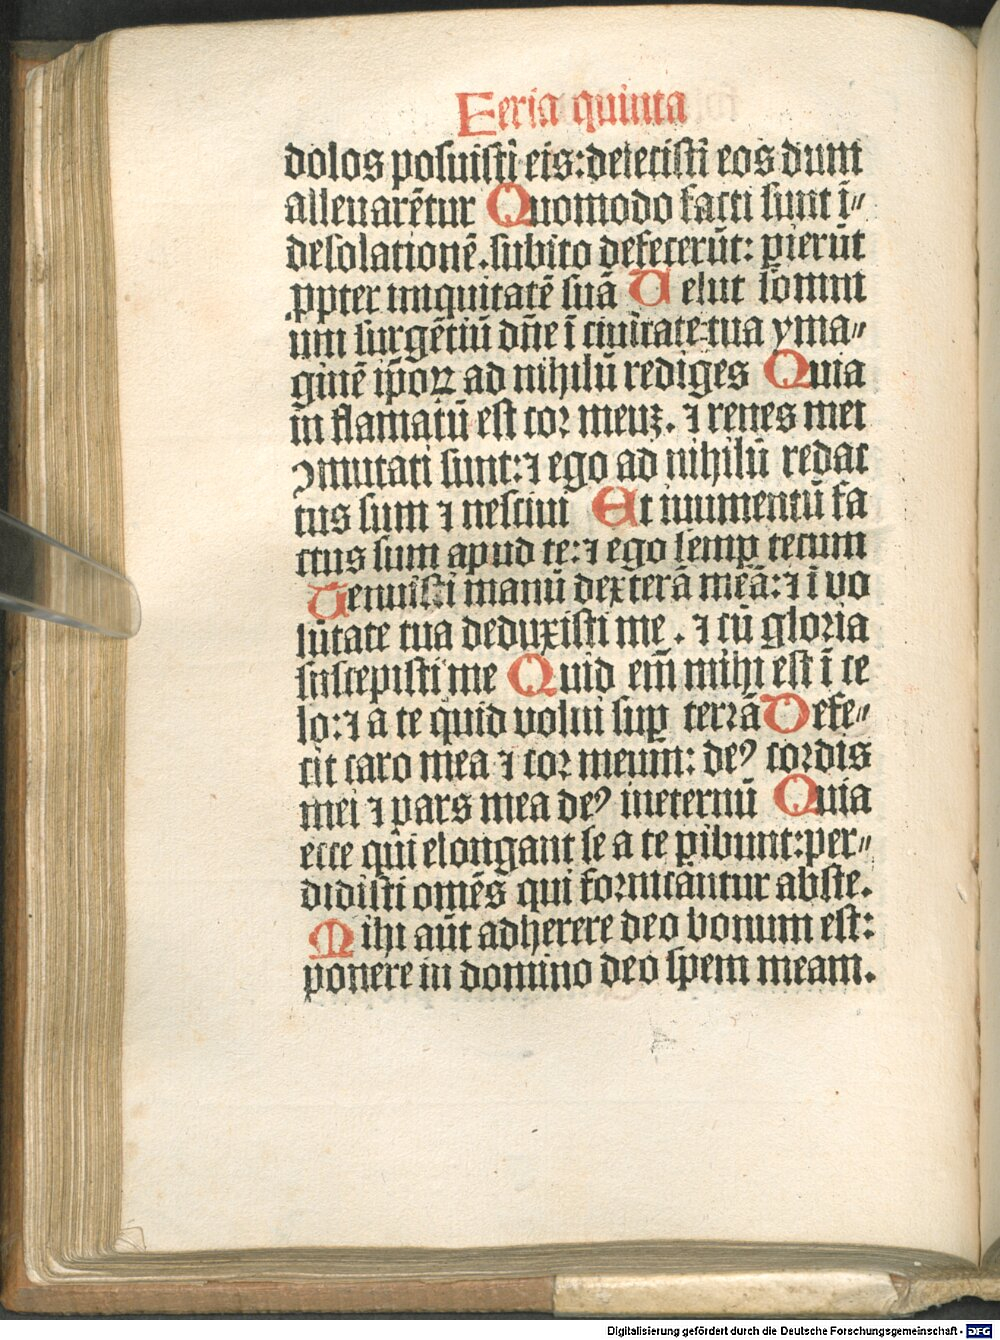 Feria quinta
dolos posuisti eis: deiecisti eos dum
alleuarētur Quomodo facti sunt ī⸗
desolationē. subito defecerūt: ꝑierūt
ꝓpter iniquitatē suā Uelut somni
um surgētiū dn̄e ī ciuitate tua yma⸗
ginē ip̄oꝝ ad nihilū rediges Quia
in flamatū est cor meuꝫ. ⁊ renes mei
ꝯmutati sunt: ⁊ ego ad nihilū redac
tus sum ⁊ nesciui Et iuumentū fa
ctus sum apud te: ⁊ ego semꝑ tecum
Tenuisti manū dexterā meā: ⁊ ī vo
lūtate tua deduxisti me. ⁊ cū gloria
suscepisti me Quid em̄ mihi est ī ce
lo: ⁊ a te quid volui suꝑ terrā Defe⸗
cit caro mea ⁊ cor meum: deꝰ cordis
mei ⁊ pars mea deꝰ ineternū Quia
ecce qui elongant se a te ꝑibunt: per⸗
didisti omēs qui fornicāntur abste.
Mihi aūt adherere deo bonum est:
ponere in domino deo spem meam.
Digitalisierung gefördert durch die Deutsche Forschungsgemeinschaft - DFG